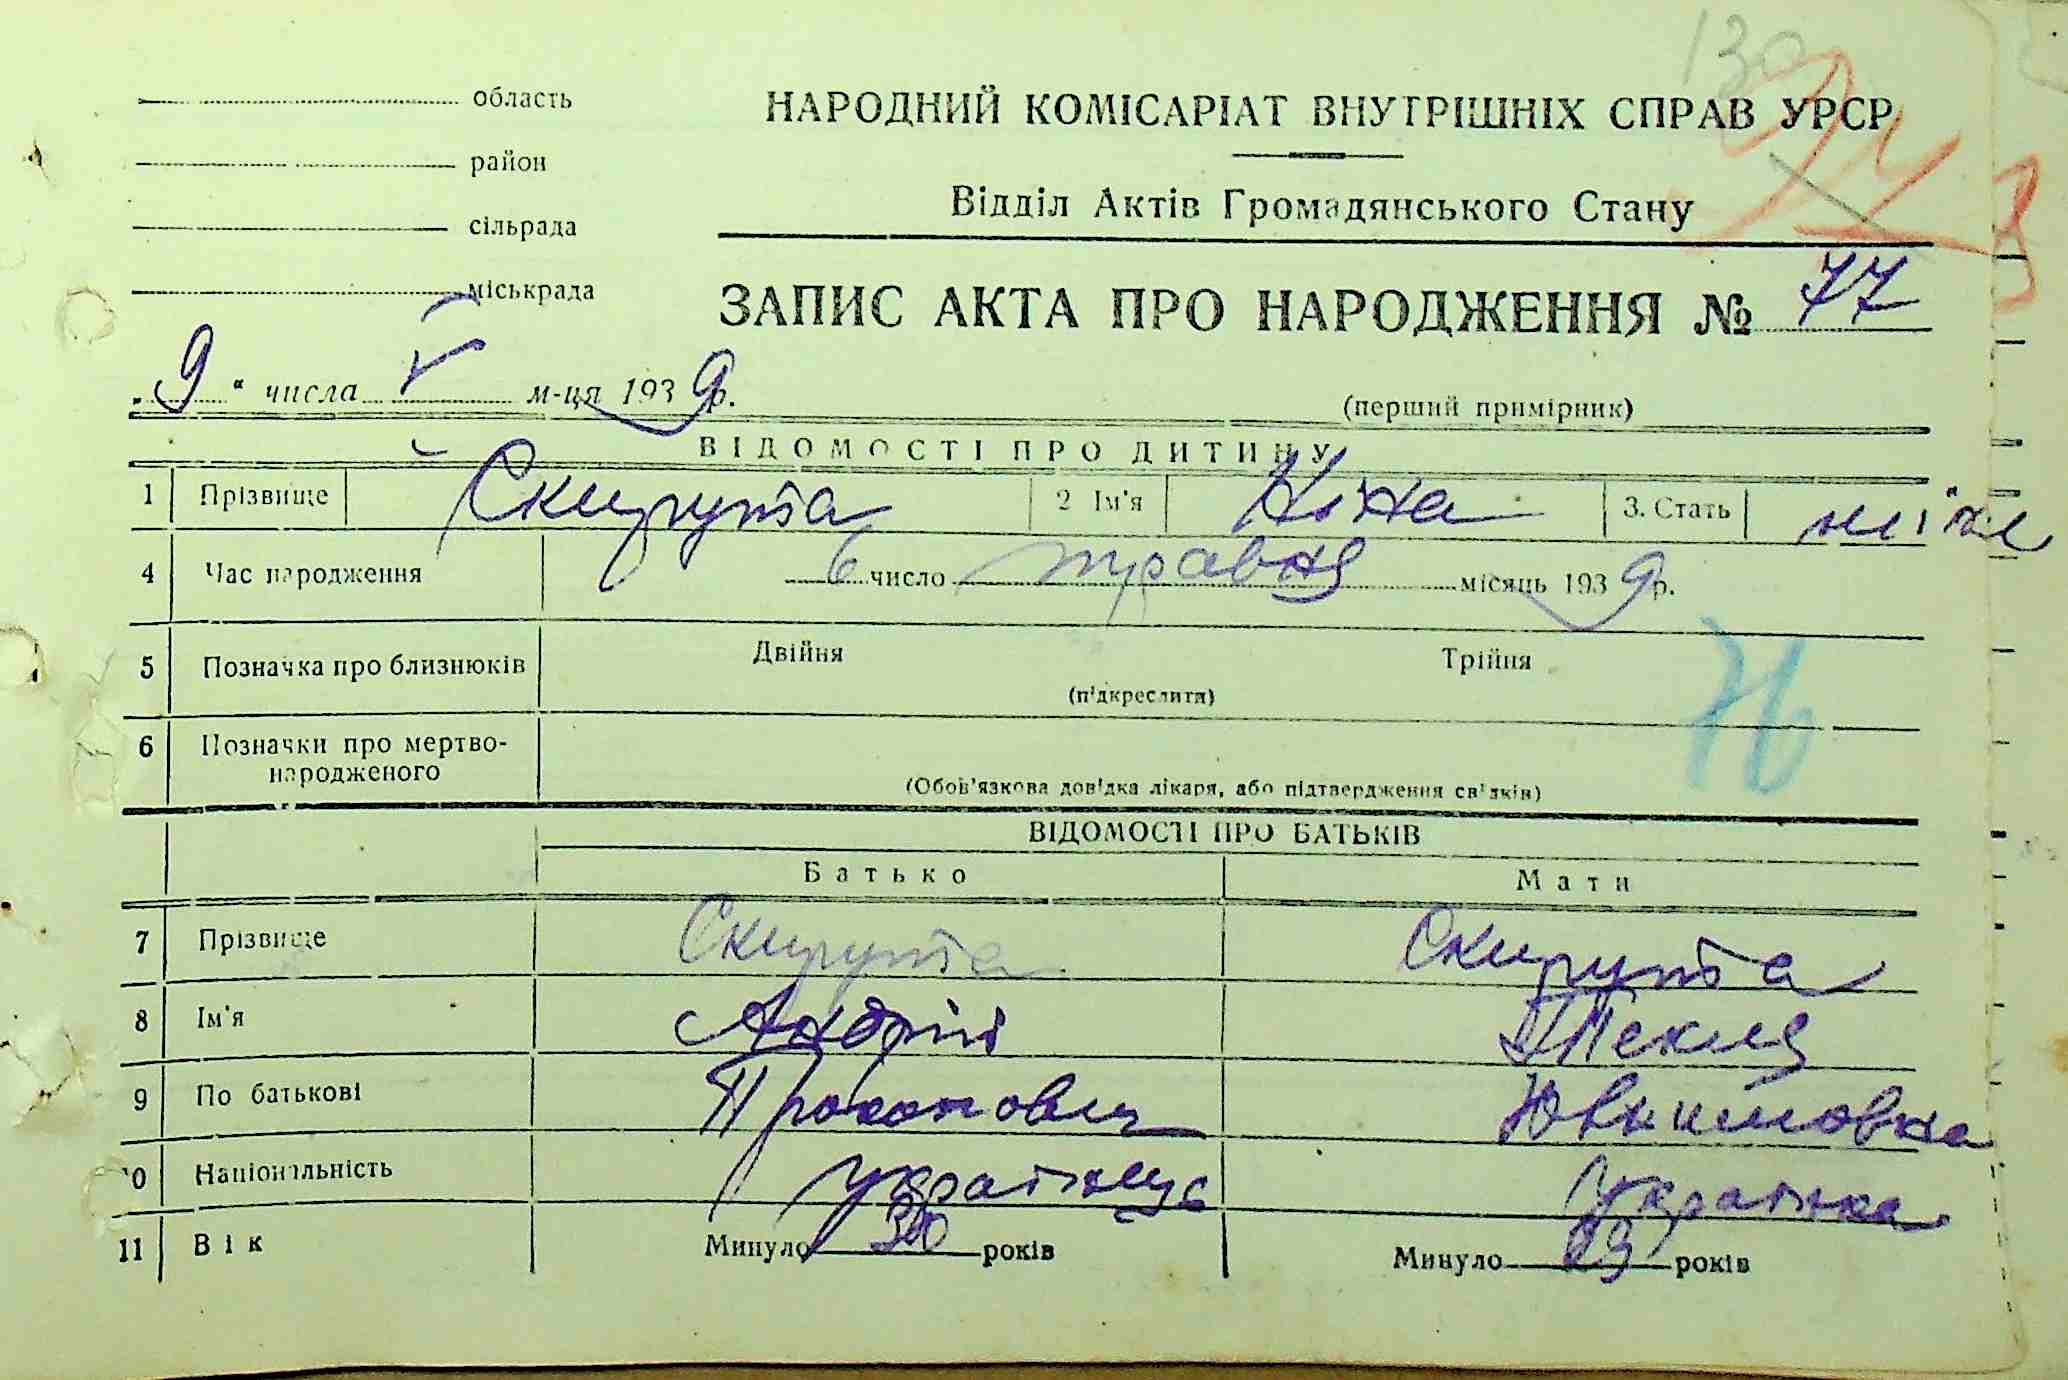 130
область
НАРОДНИЙ КОМІСАРІАТ ВНУТРІШНІХ СПРАВ УРСР
район
Відділ Актів Громадянського Стану
сільрада
міськрада
ЗАПИС АКТА ПРО НАРОДЖЕННЯ № 77
„9“ числа V м-ця 1939р.
(перший примірник)
ВІДОМОСТІ ПРО ДИТИНУ
1 Прізвище Скирута 2 Ім'я Ніна 3. Стать
4 Час народження 6 число травня місяць 1939р.
5 Позначка про близнюків Двійня Трійня
(підкреслити)
6 Позначки про мертво-
народженого
(Обов'язкова довідка лікаря, або підтвердження свідків)
ВІДОМОСТІ ПРО БАТЬКІВ
Батько Мати
7 Прізвище Скирута Скирута
8 Ім'я Андрій Текля
9 По батькові
10 Національність українець українка
11 Вік Минуло 30 років Минуло 29 років